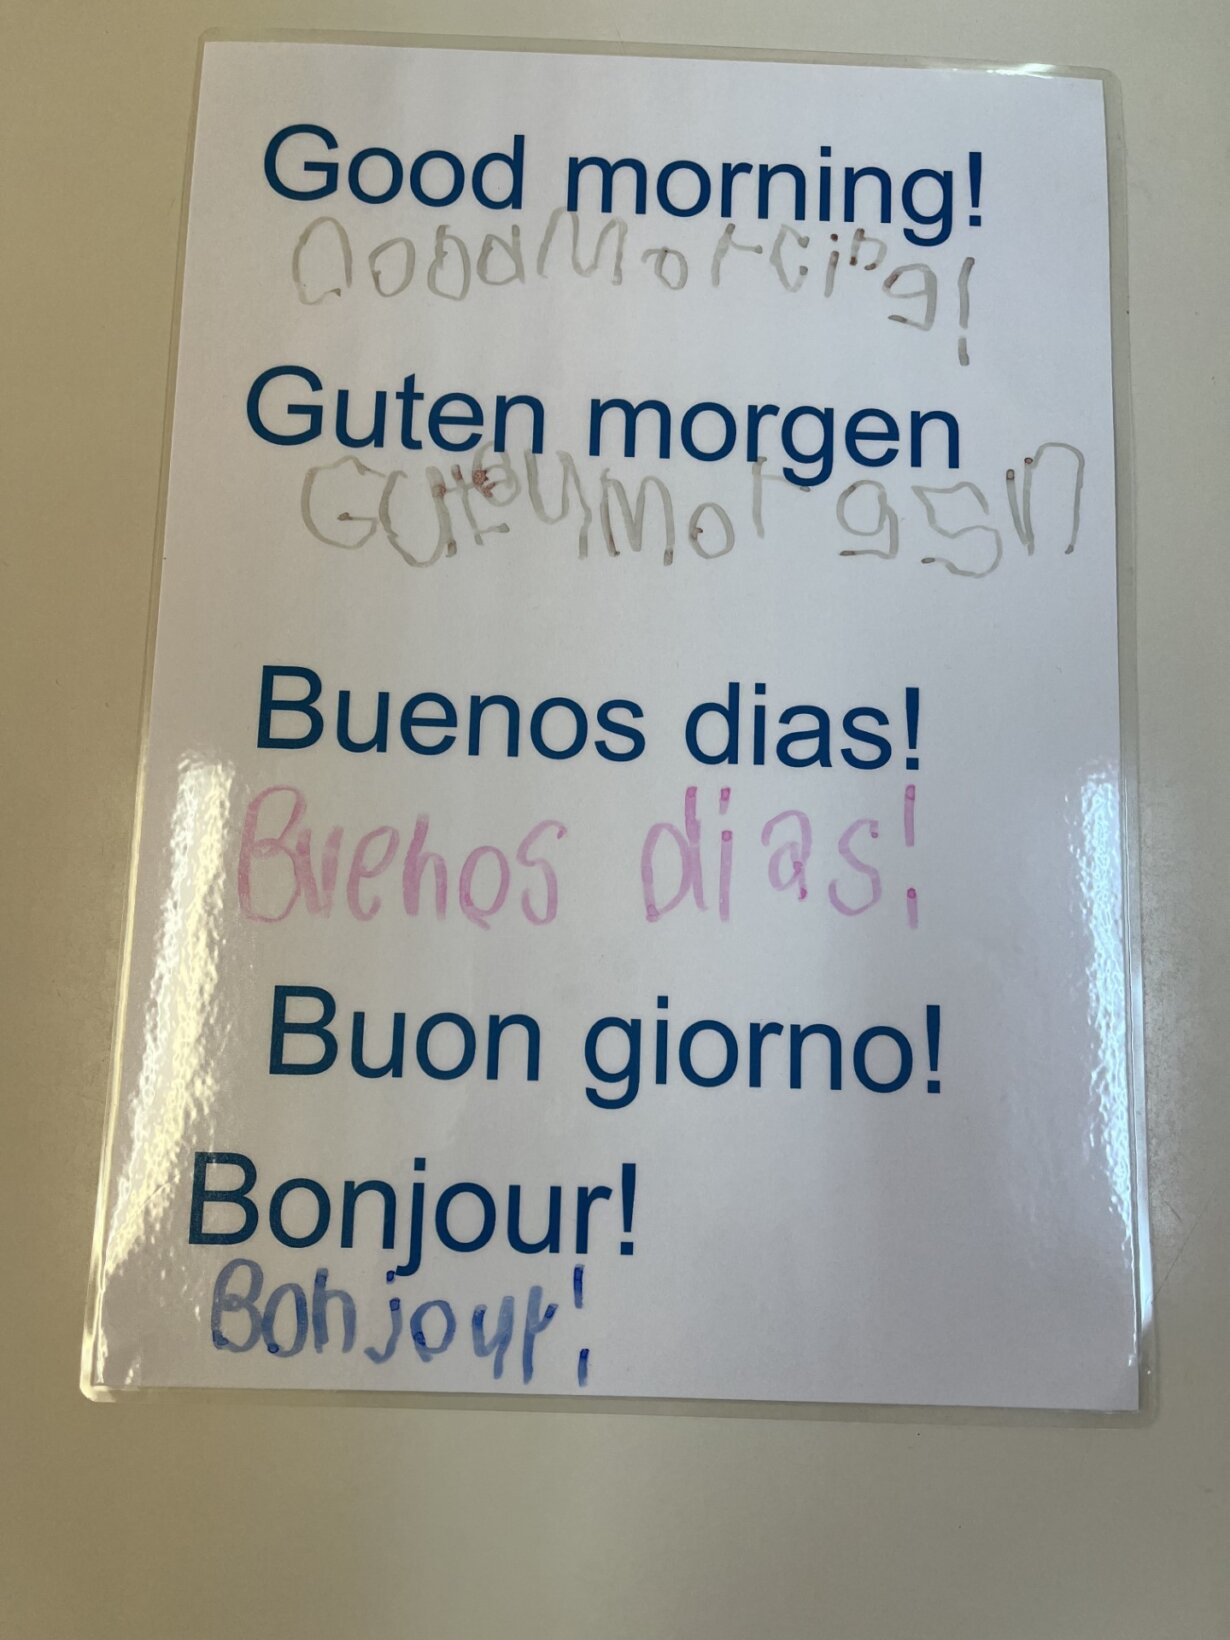 Good morning!
Good Morning!
Guten morgen
morgen
Buenos dias!
Buenos dias!
Buon giorno!
Bonjour!
Bonjour!